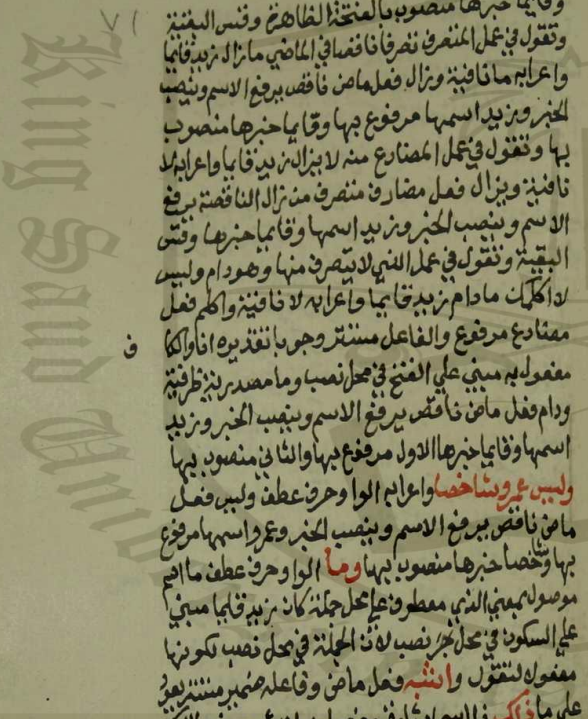 وقايما خبرها منصوب بالفتحة الظاهرة وقس البقية
وتقول في عمل المتصرف تصرفا ناقصا في الماضي مازال زيد قايما
واعرابه ما نافية وزال فعل ماض ناقص يرفع الاسم وينصب
الخبر وزيد اسمها مرفوع بها وقايما خبرها منصوب
بها وتقول في عمل المضارع منه لا يزال زيد قايما واعرابه لا
نافية ويزال فعل مضارع متصرف من زال الناقصة يرفع
الاسم وينصب الخبر وزيد اسمها وقايما خبرها وقس
البقية وتقول في عمل التي لا يتصرف منها وهو دام وليس
لا اكلمك مادام زيد قايما واعرابه لا نافية واكلم فعل
مضارع مرفوع والفاعل مستتر وجوبا تقديره انا والكا
ف
مفعول به مبني علي الفتح في محل نصب وما مصدرية ظرفية
ودام فعل ماض ناقص يرفع الاسم وينصب الخبر وزيد
اسمها وقايما خبرها الاول مرفوع بها والثاني منصوب بها
وليس عمرو شاخصا واعرابه الواو حرف عطف وليس فعل
ماض ناقص يرفع الاسم وينصب الخبر وعمرو اسمها مرفوع
بها وشاخصا خبرها منصوب بها وما الواو حرف عطف ما اسم
موصول بمعني الذي معطوف علي محل جملة كان زيد قايما مبني
علي السكون في محل نصب لان الجملة في محل نصب لكونها
مفعولا لتقول واشبه فعل ماض وفاعله ضمير مستتر يعود
علي ما
King Saud